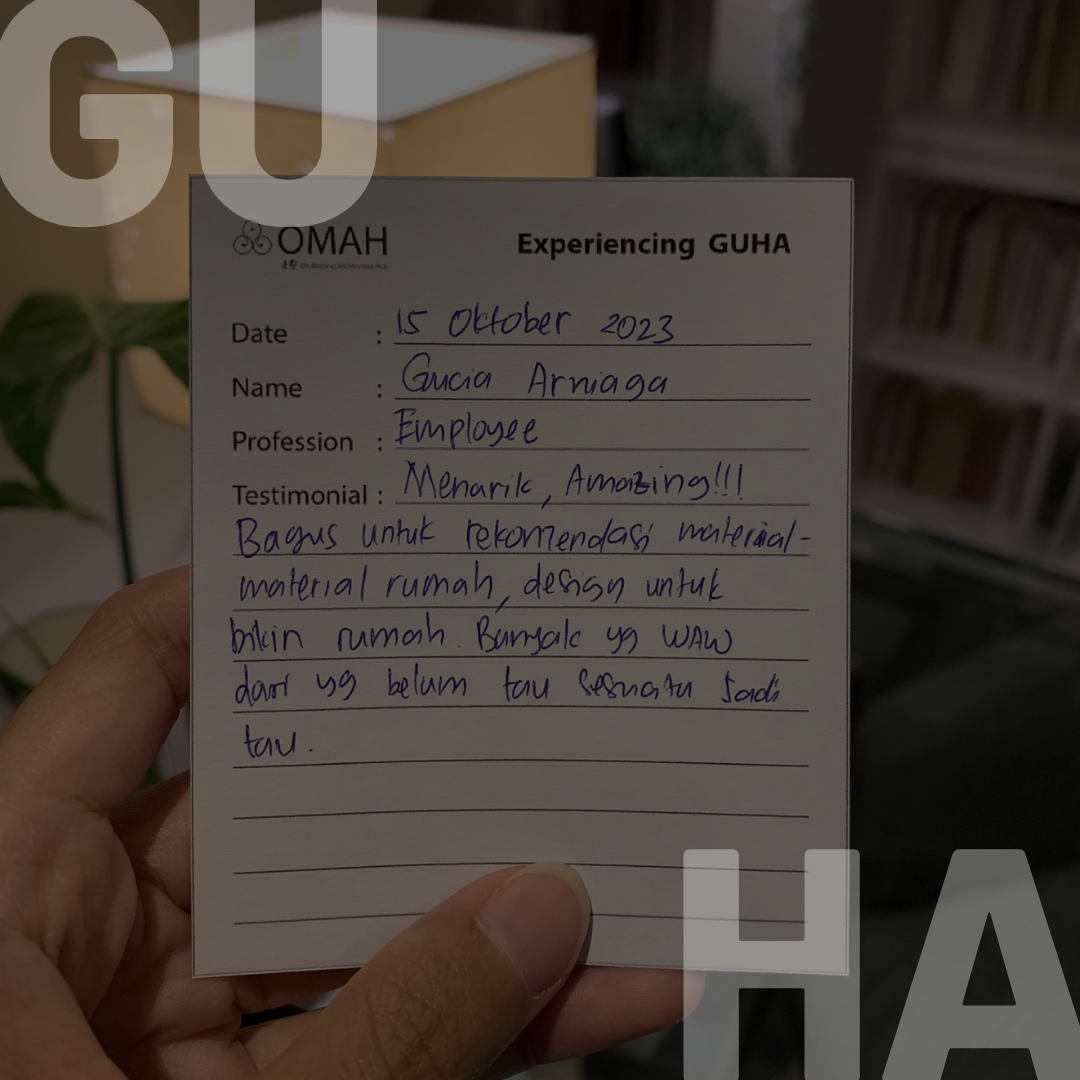 GU
OMAH
Experiencing GUHA
Date : 15 Oktober 2023
Name : Gucia Arniaga
Profession : Employee
Testimonial : Menarik, Amazing!!!
Bagus untuk rekomendasi material-
material rumah, design untuk
bikin rumah. Banyak yg WAW
dari yg belum tau sesuatu jadi
tau.
HA